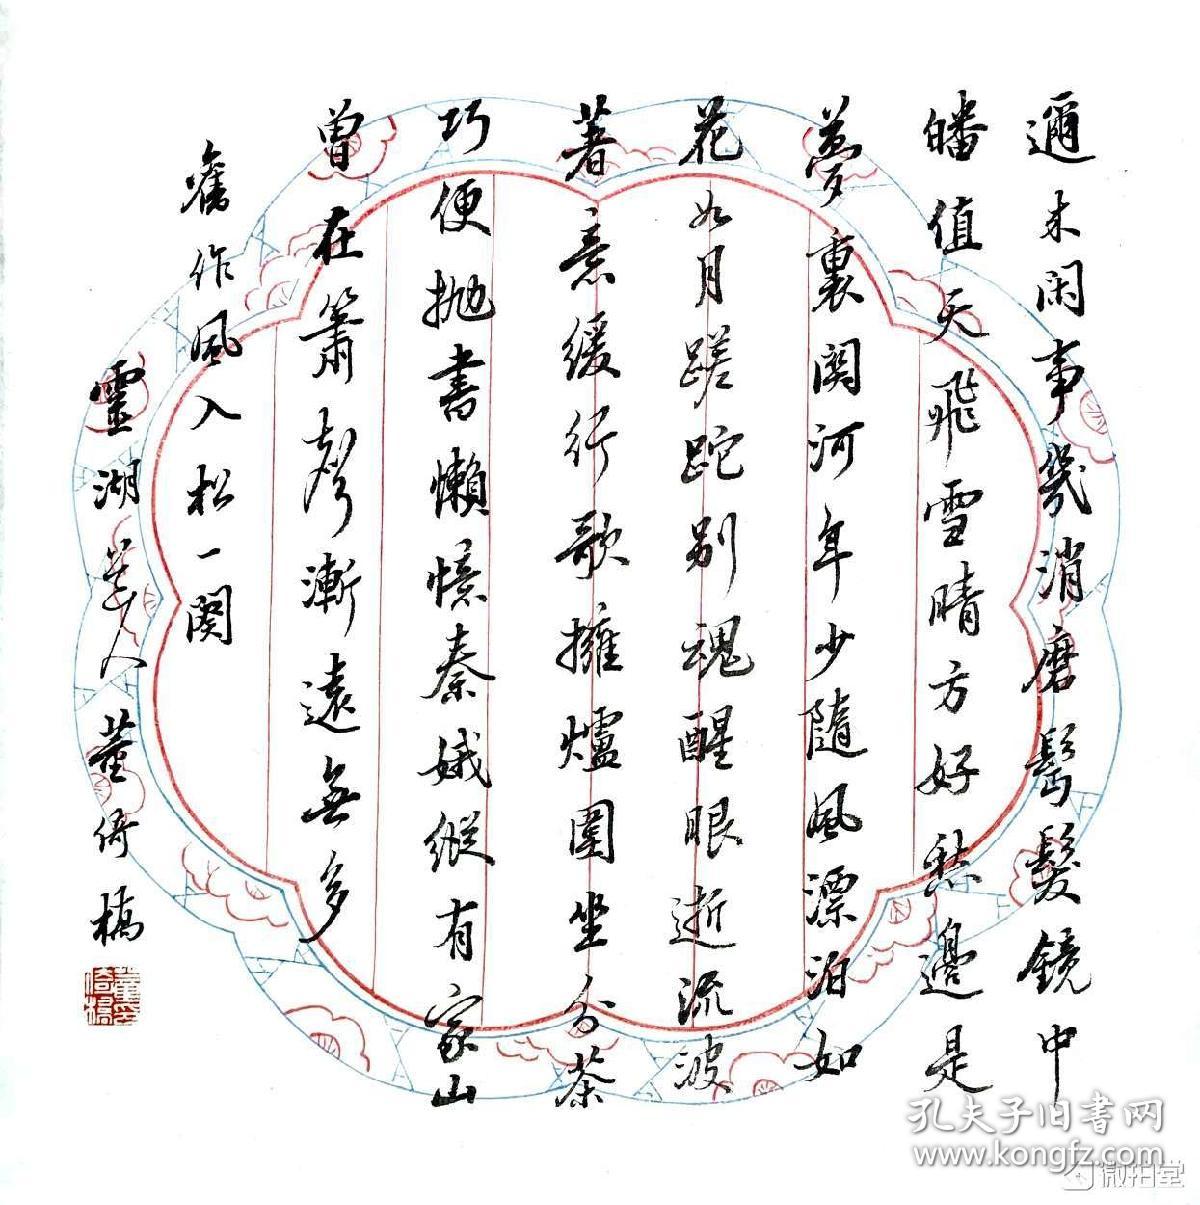 邇来閑事幾消磨鬢髮鏡中
皤值天飛雪晴方好愁邊是
夢裏關河年少隨風漂泊如
花如月蹉跎別魂醒眼逝流波
著意緩行歌擁爐圍坐分茶
巧便拋書懶憶秦娥縱有家山
曾在簫聲漸遠無多
舊作風入松一闋
靈湖人董倚橋
孔夫子旧书网
www.kongfz.com
微拍堂